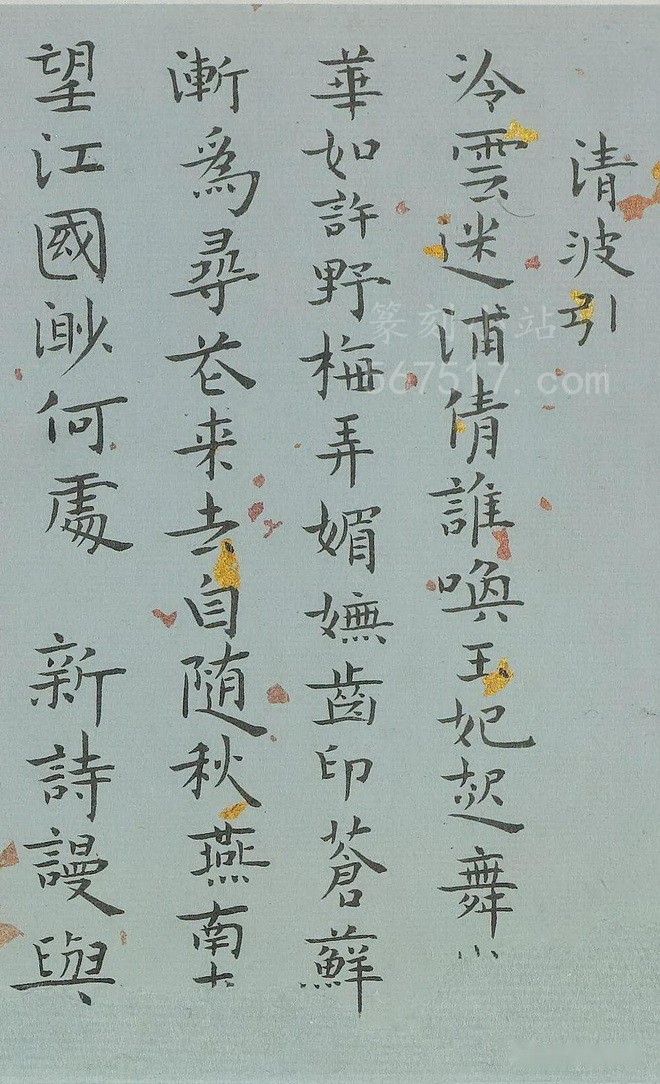 清波引
冷雲迷浦倩誰喚王妃起舞
華如許野梅弄媚嫵齒印蒼蘚
漸爲尋花来去自随秋燕南
望江國渺何處 新詩謾與
篆刻 站
567517. com